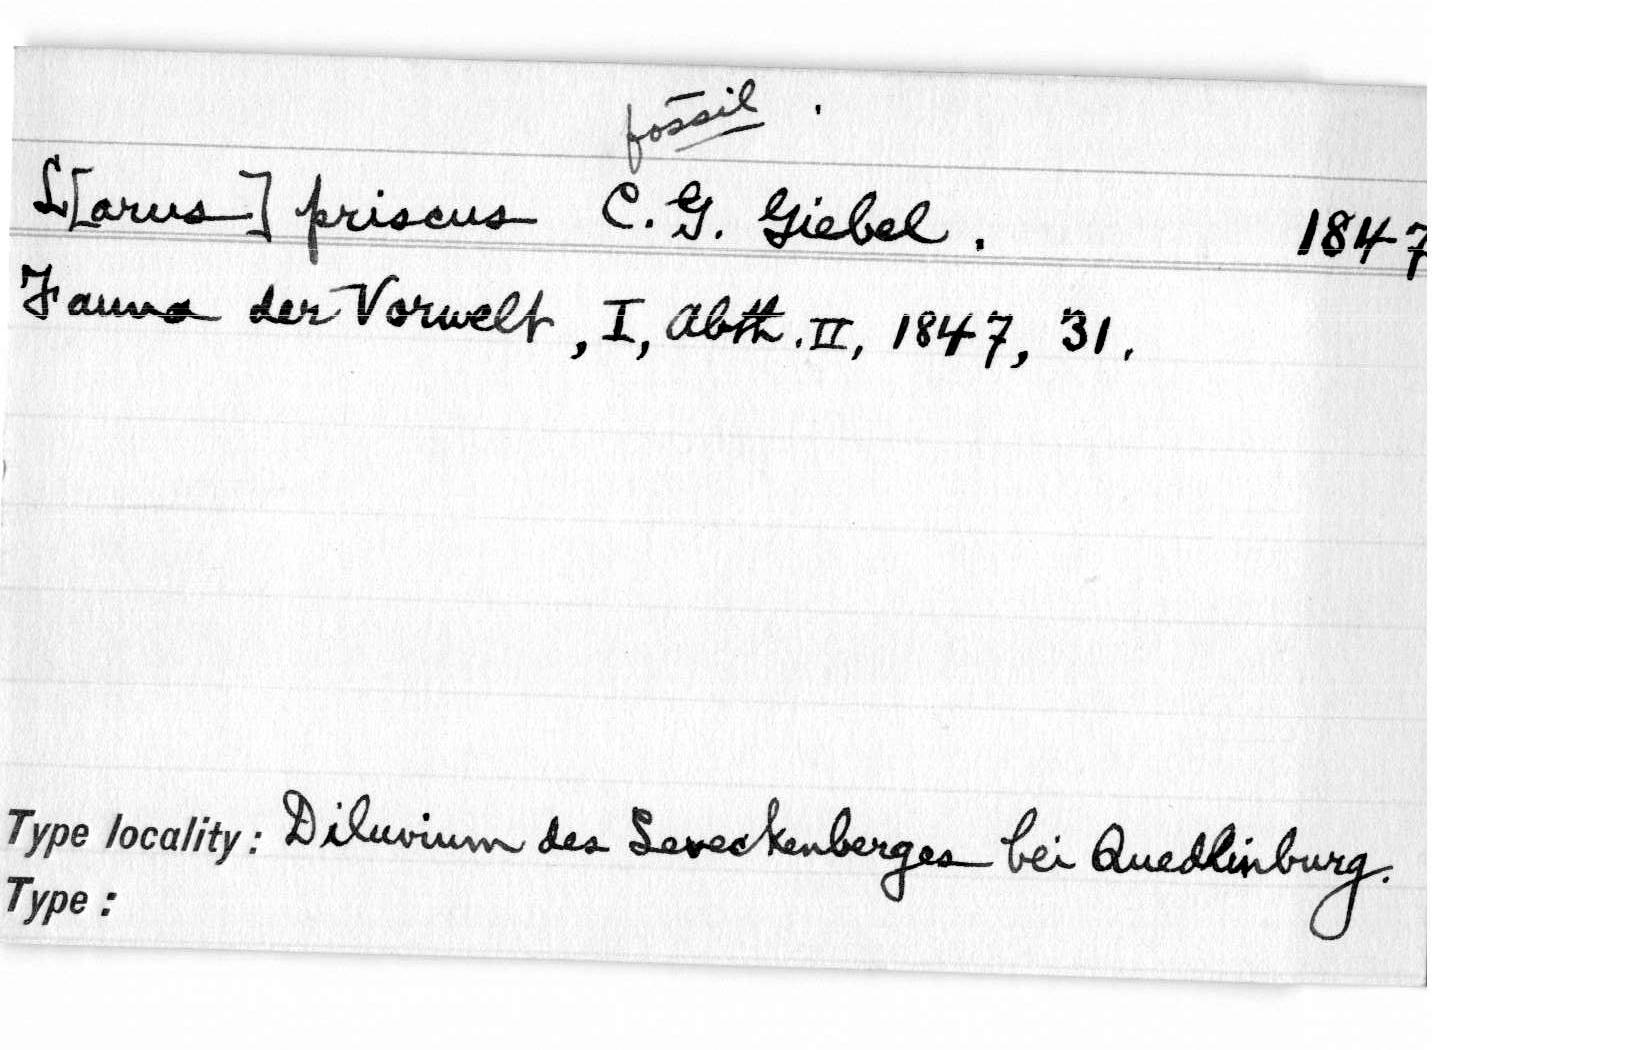 fossil.
L[arus] priscus C. G. Giebel. 1847
Fauna der Vorwelt, I, Abth. II, 1847, 31.
Type locality: Diluvium des Seveckenberges bei Quedlinburg.
Type: